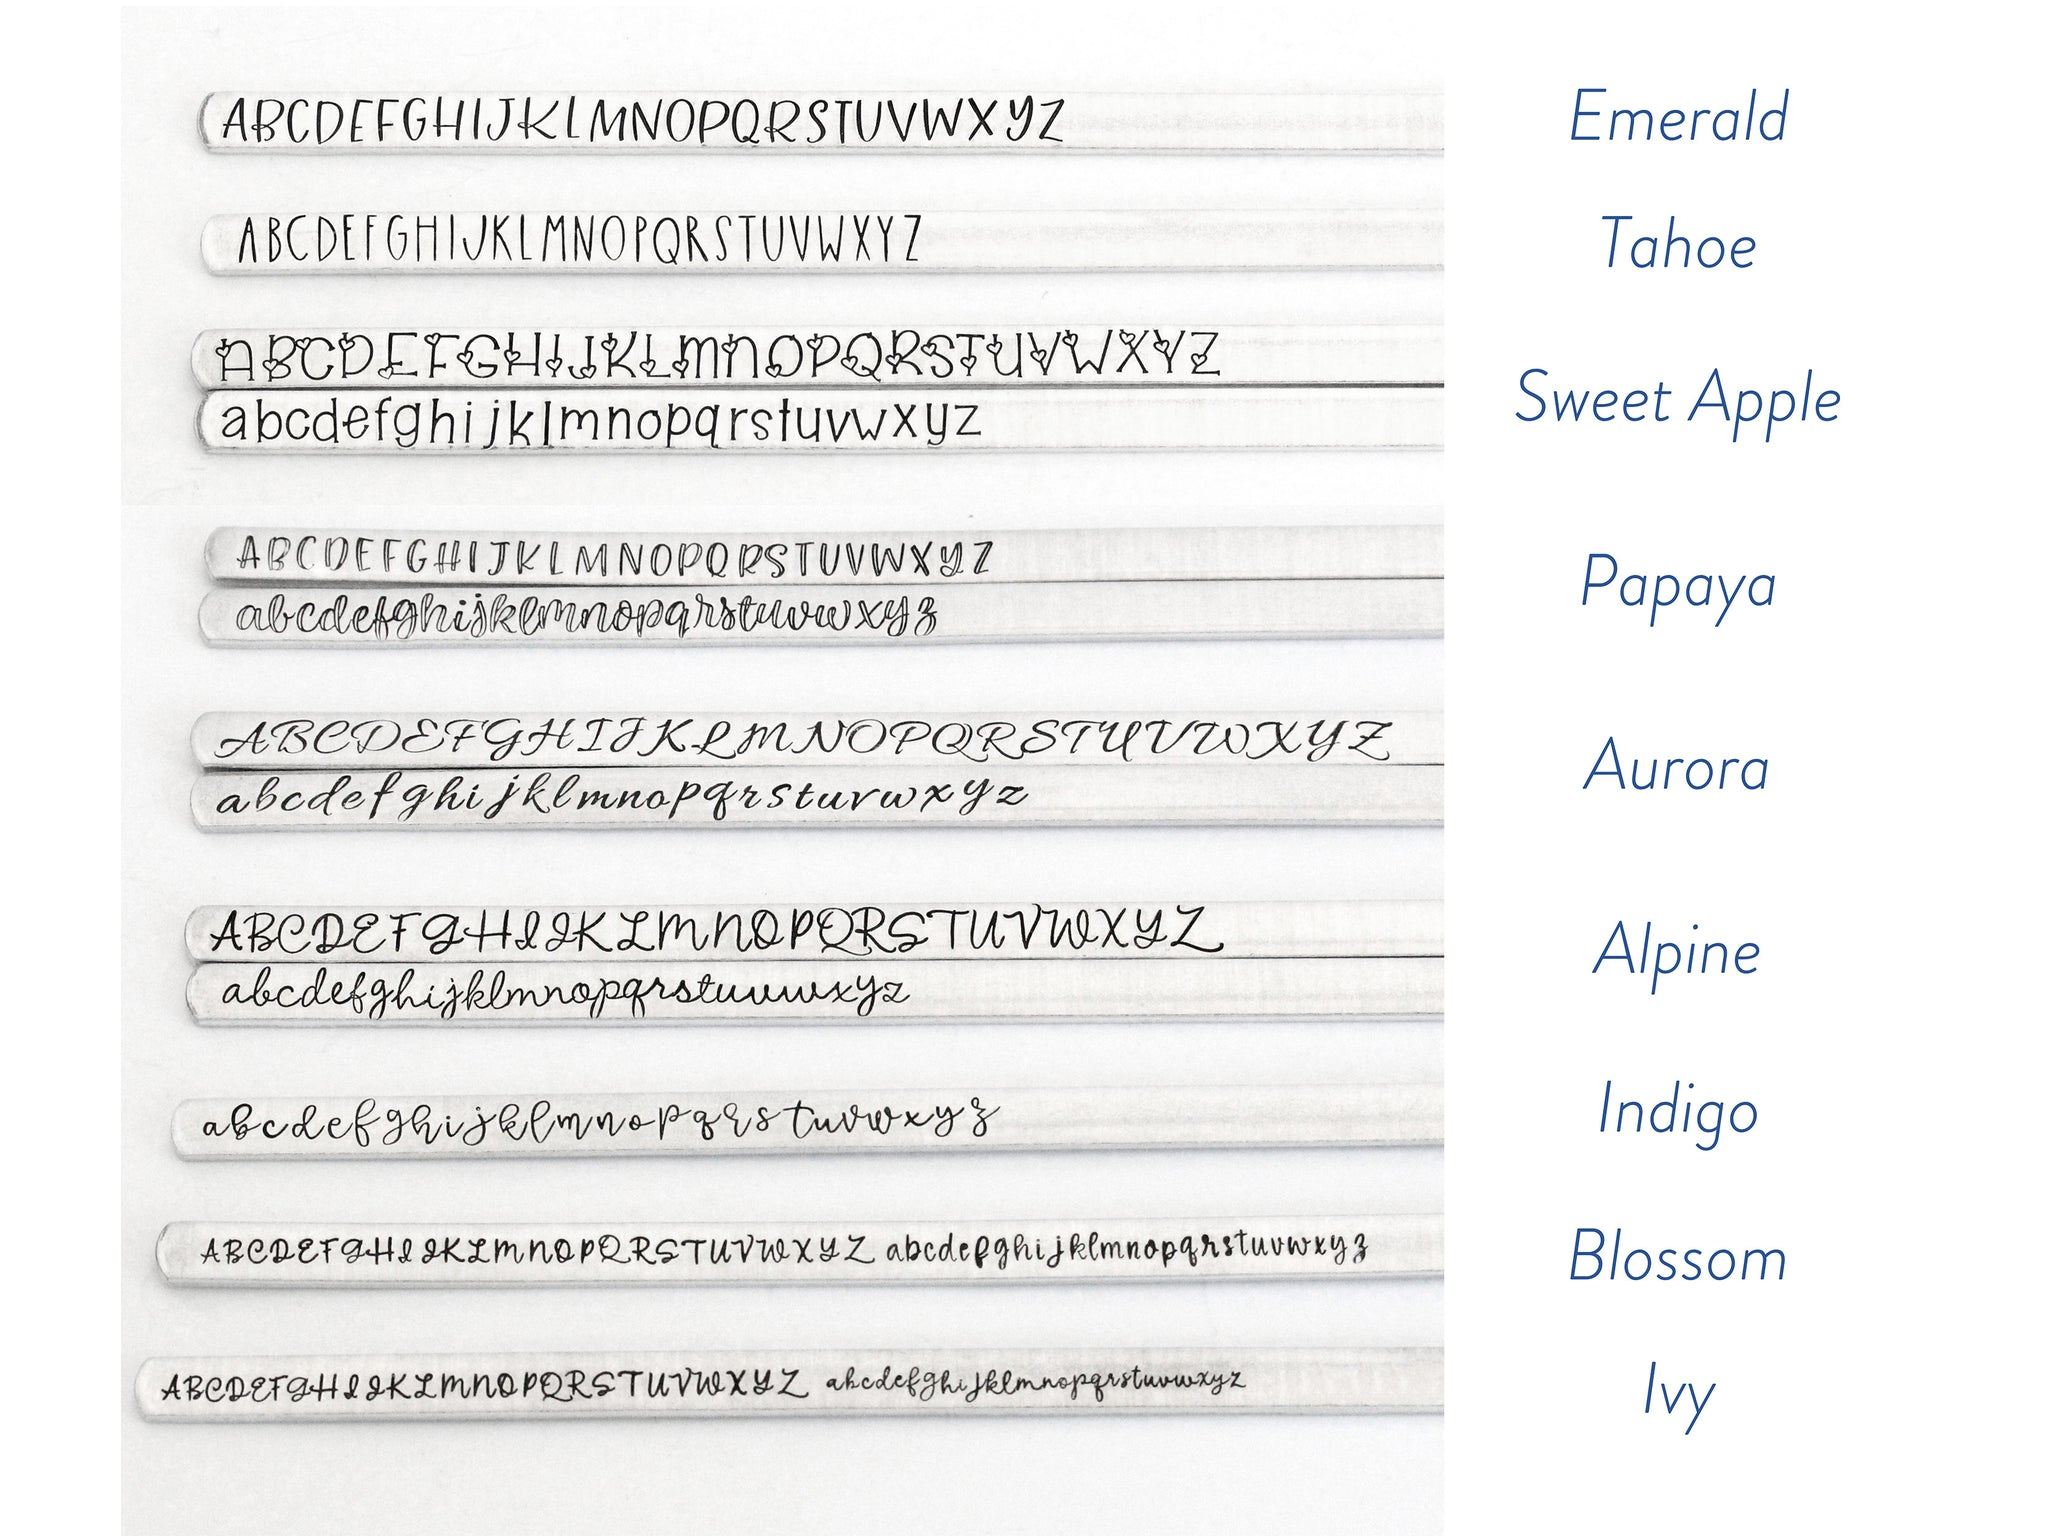 ABCDEFGHIJKLMNOPQRSTUVWXYZ
Emerald
ABCDEFGHIJKLMNOPQRSTUVWXYZ
Tahoe
ABCDEFGHIJKLMNOPQRSTUVWXYZ
abcdefghijklmnopqrstuvwxyz
Sweet Apple
ABCDEFGHIJKLMNOPQRSTUVWXYZ
abcdefghijklmnopqrstuvwxyz
Papaya
ABCDEFGHIJKLMNOPQRSTUVWXYZ
abcdefghijklmnopqrstuvwxyz
Aurora
ABCDEFGHIJKLMNOPQRSTUVWXYZ
abcdefghijklmnopqrstuvwxyz
Alpine
abcdefghijklmnopqrstuvwxyz
Indigo
ABCDEFGHIJKLMNOPQRSTUVWXYZ abcdefghijklmnopqrstuvwxyz
Blossom
ABCDEFGHIJKLMNOPQRSTUVWXYZ abcdefghijklmnopqrstuvwxyz
Ivy